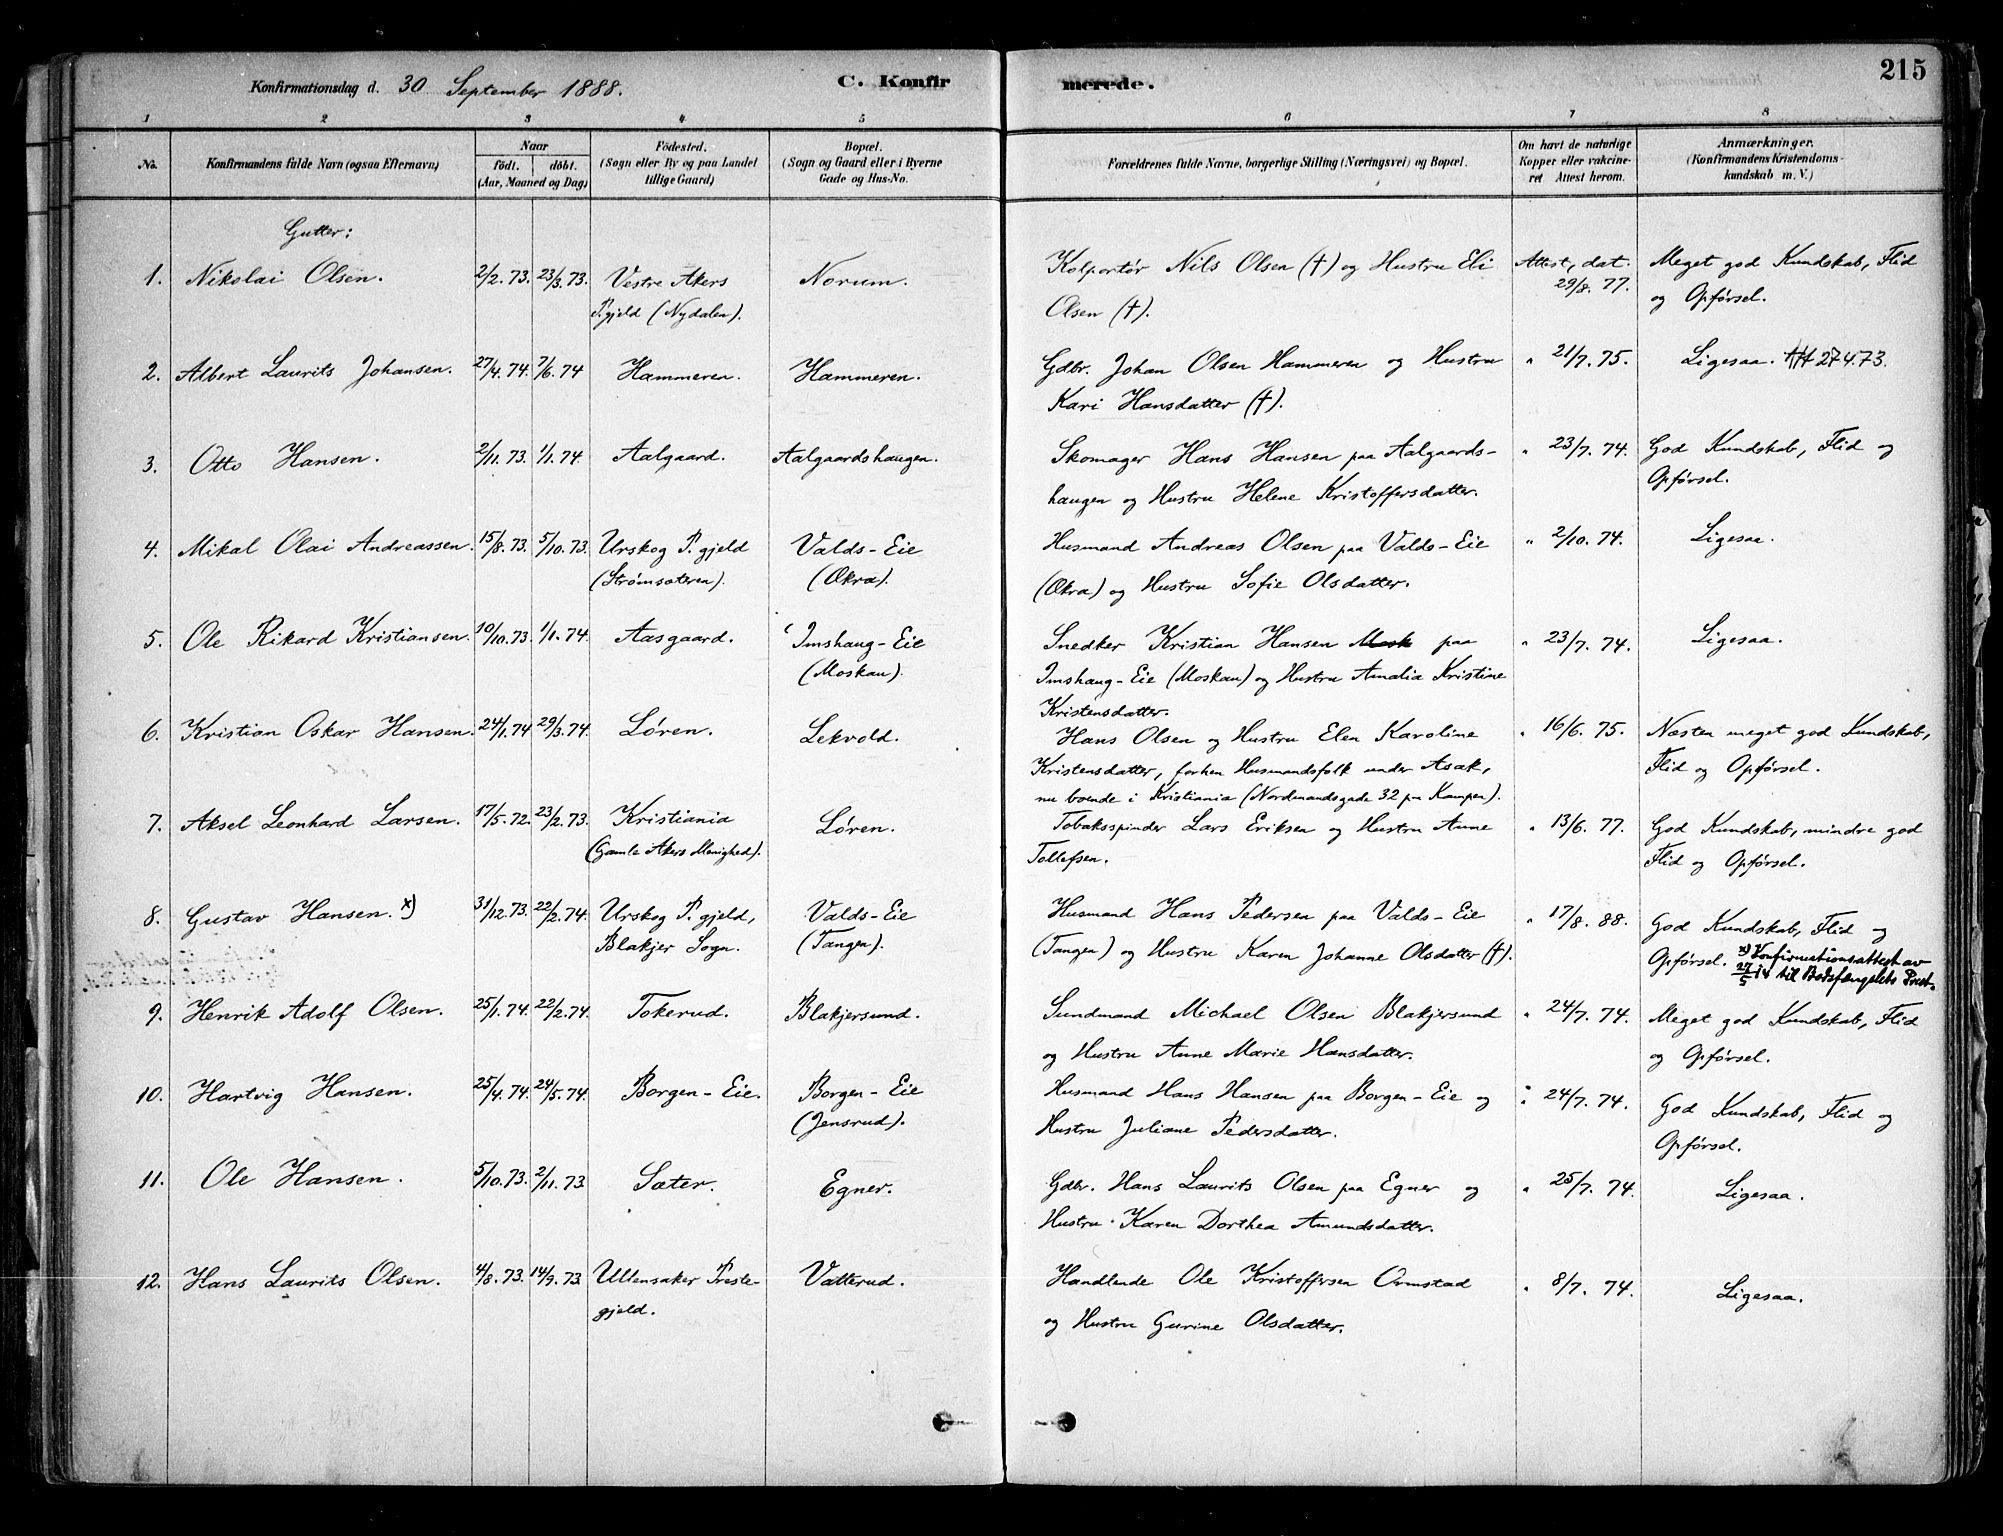 Konfirmationsdag d. 30 September 1888. C. Konfirmerede. 215
1 2 3 4 5 6 7 8
No. Konfirmandens fulde Navn (ogsaa Efternavn) Naar födt. döbt. (Aar, Maaned og Dag) Födested. (Sogn eller By og paa Landet tillige Gaard) Bopæl. (Sogn og Gaard eller i Byerne Gade og Hus-No. Forældrenes fulde Navne, borgerlige Stilling (Næringsvei) og Bopæl. Om havt de naturlige Kopper eller vakcineret Attest herom. Anmærkninger. (Konfirmandens Kristendomskundskab m. V.)
Gutter:
1. Nikolai Olsen. 2/2. 73. 23/3. 73. Vestre Akers Norum. Kolportør Nils Olsen (†) og Hustru Eli Attest, dat. 29/8. 77. Meget god Kundskab, Flid
P.gjeld (Nydalen). Olsen (†). og Opførsel.
2. Albert Laurits Johansen. 27/4. 74. 7/6. 74 Hammeren. Hammeren. Gdbr. Johan Olsen Hammeren og Hustru " 21/7. 75. Ligesaa. 27473.
Kari Hansdatter (†).
3. Otto Hansen. 2/11. 73. 1/1. 74. Aalgaard. Aalgaardshaugen. Skomager Hans Hansen paa Aalgaards- " 23/7. 74. God Kundskab, Flid og
haugen og Hustru Helene Kristoffersdatter. Opførsel.
4. Mikal Olai Andreassen. 15/8. 73. 5/10. 73. Urskog P.gjeld Valds-Eie Husmand Andreas Olsen paa Valds-Eie " 2/10. 74. Ligesaa.
(Strømsæteren). (Økra). (Økra) og Hustru Sofie Olsdatter.
5. Ole Rikard Kristiansen. 10/10. 73. 1/1. 74. Aasgaard. Imshaug-Eie Snedker Kristian Hansen Mosk paa " 23/7. 74. Ligesaa.
(Moskau). Imshaug-Eie (Moskau) og Hustru Amalia Kristine
Kristensdatter.
6. Kristian Oskar Hansen. 24/1. 74 29/3. 74. Løren. Lekvold. Hans Olsen og Hustru Elen Karoline " 16/6. 75. Næsten meget god Kundskab,
Kristensdatter, forhen Husmandsfolk under Asak, Flid og Opførsel.
nu boende i Kristiania (Nordmandsgade 32 pa Kampen).
7. Aksel Leonhard Larsen. 17/5. 72. 23/2. 73. Kristiania Løren. Tobaksspinder Lars Eriksen og Hustru Anne " 13/6. 77. God Kundskab, mindre god
(Gamle Akers Menighed). Tollefsen. Flid og Opførsel.
8. Gustav Hansen. x) 31/12. 73. 22/2. 74. Urskog P.gjeld, Valds-Eie Husmand Hans Pedersen paa Valds-Eie " 17/8. 88. God Kundskab, Flid og
Blakjer Sogn. (Tangen). (Tangen) og Hustru Karen Johanne Olsdatter (†). Opførsel. x) Konfirmationsattest av
27/5 til Bodsfængslets Prest.
9. Henrik Adolf Olsen. 25/1. 74. 22/2. 74 Tokerud. Blakjersund. Sundmand Michael Olsen Blakjersund " 24/7. 74. Meget god Kundskab, Flid
og Hustru Anne Marie Hansdatter. og Opførsel.
10. Hartvig Hansen. 25/4. 74. 24/5. 74. Borgen-Eie. Borgen-Eie Husmand Hans Hansen paa Borgen-Eie og " 24/7. 74. God Kundskab, Flid og
(Jensrud). Hustru Juliane Pedersdatter. Opførsel.
11. Ole Hansen. 5/10. 73. 2/11. 73. Sæter. Egner. Gdbr. Hans Laurits Olsen paa Egner og " 25/7. 74. Ligesaa.
Hustru Karen Dorthea Amundsdatter.
12. Hans Laurits Olsen. 4/8. 73. 14/9. 73. Ullensaker Preste- Vatterud. Handlende Ole Kristoffersen Ormstad " 8/7. 74. Ligesaa.
gjeld. og Hustru Gurine Olsdatter.